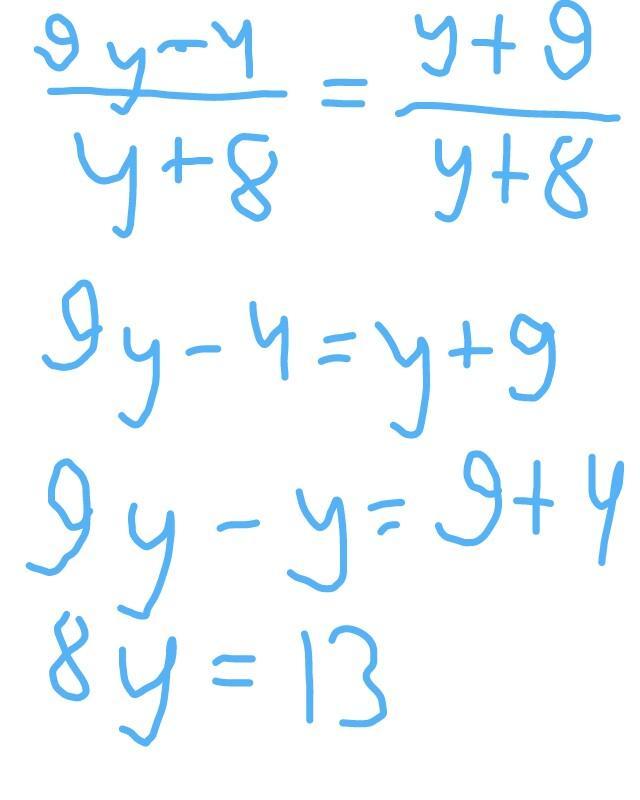 9y-4/y+8 = y+9/y+8
9y-4=y+9
9y-y=9+4
8y=13